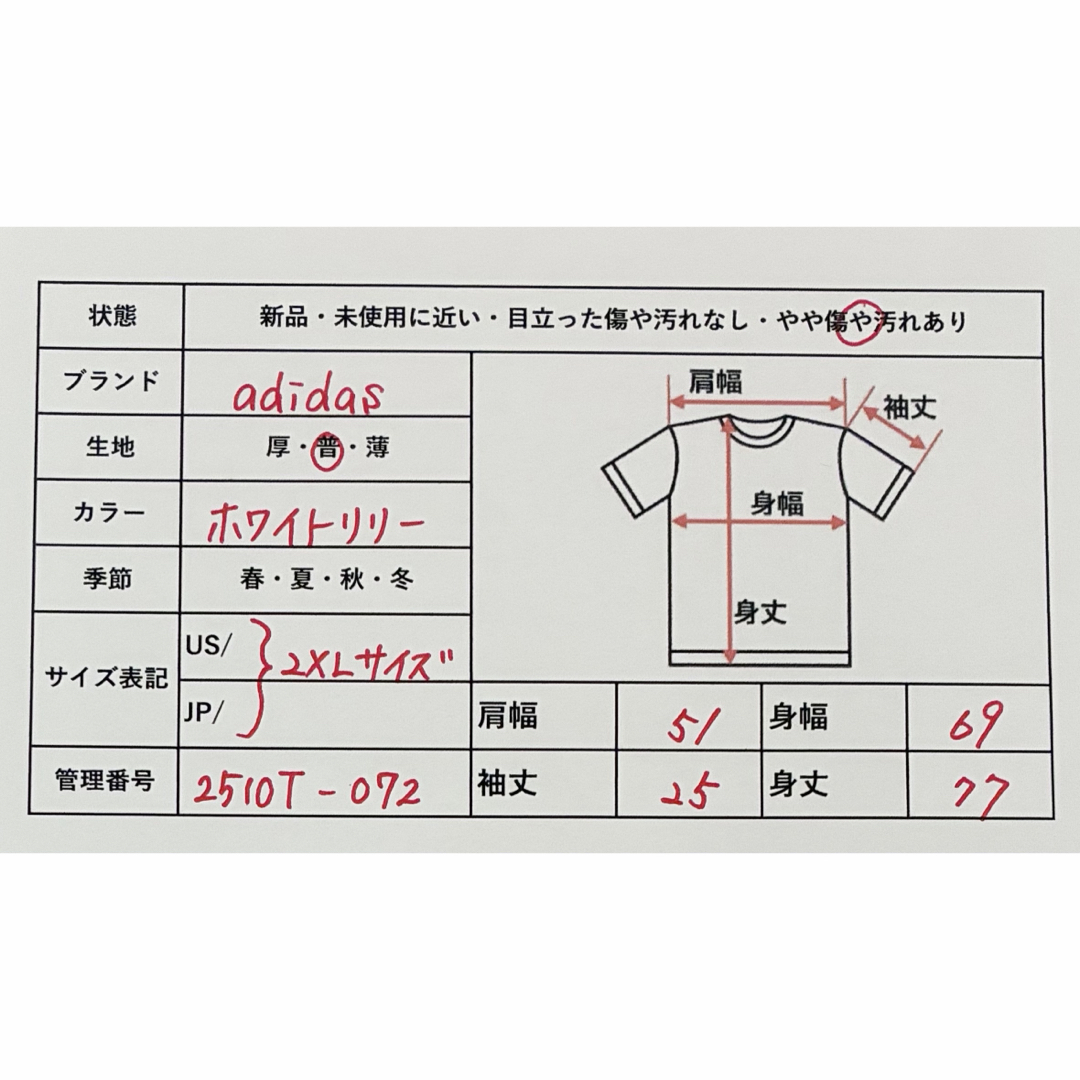 状態 新品・未使用に近い・目立った傷や汚れなし・やや傷や汚れあり
ブランド adidas
生地 厚・普・薄
カラー ホワイトリリー
季節 春・夏・秋・冬
サイズ表記 US/ JP/ 2XLサイズ
管理番号 2510T-072
肩幅
袖丈
身幅
身丈
肩幅 51 身幅 69
袖丈 25 身丈 77